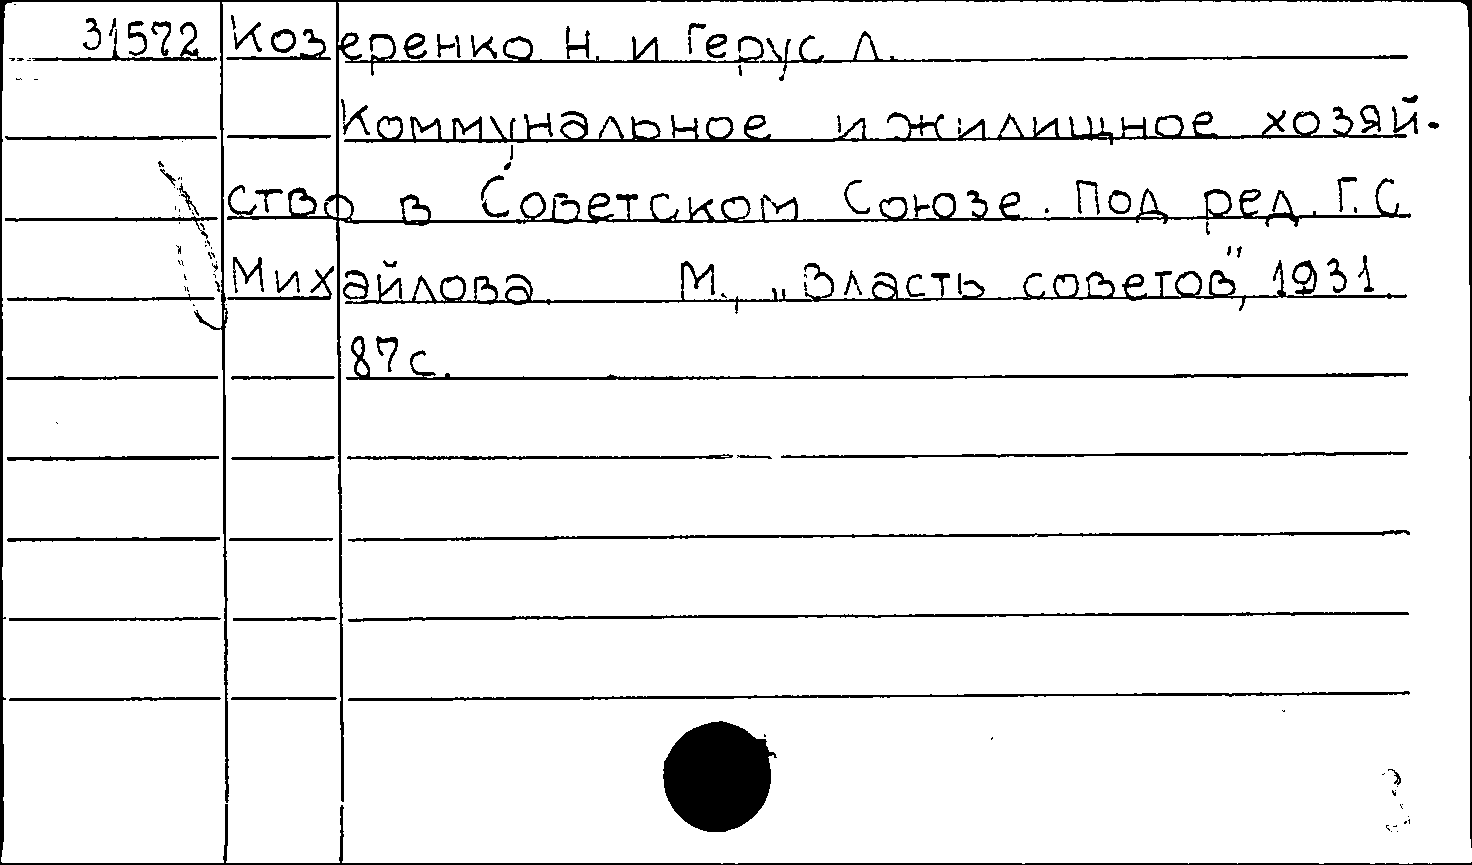 31572 Козеренко Н. и Герус Л.
Коммунальное и жилищное хозяй-
ство в Советском Союзе. Под ред. Г.С.
Михайлова. М., „Власть советов", 1931.
87с.